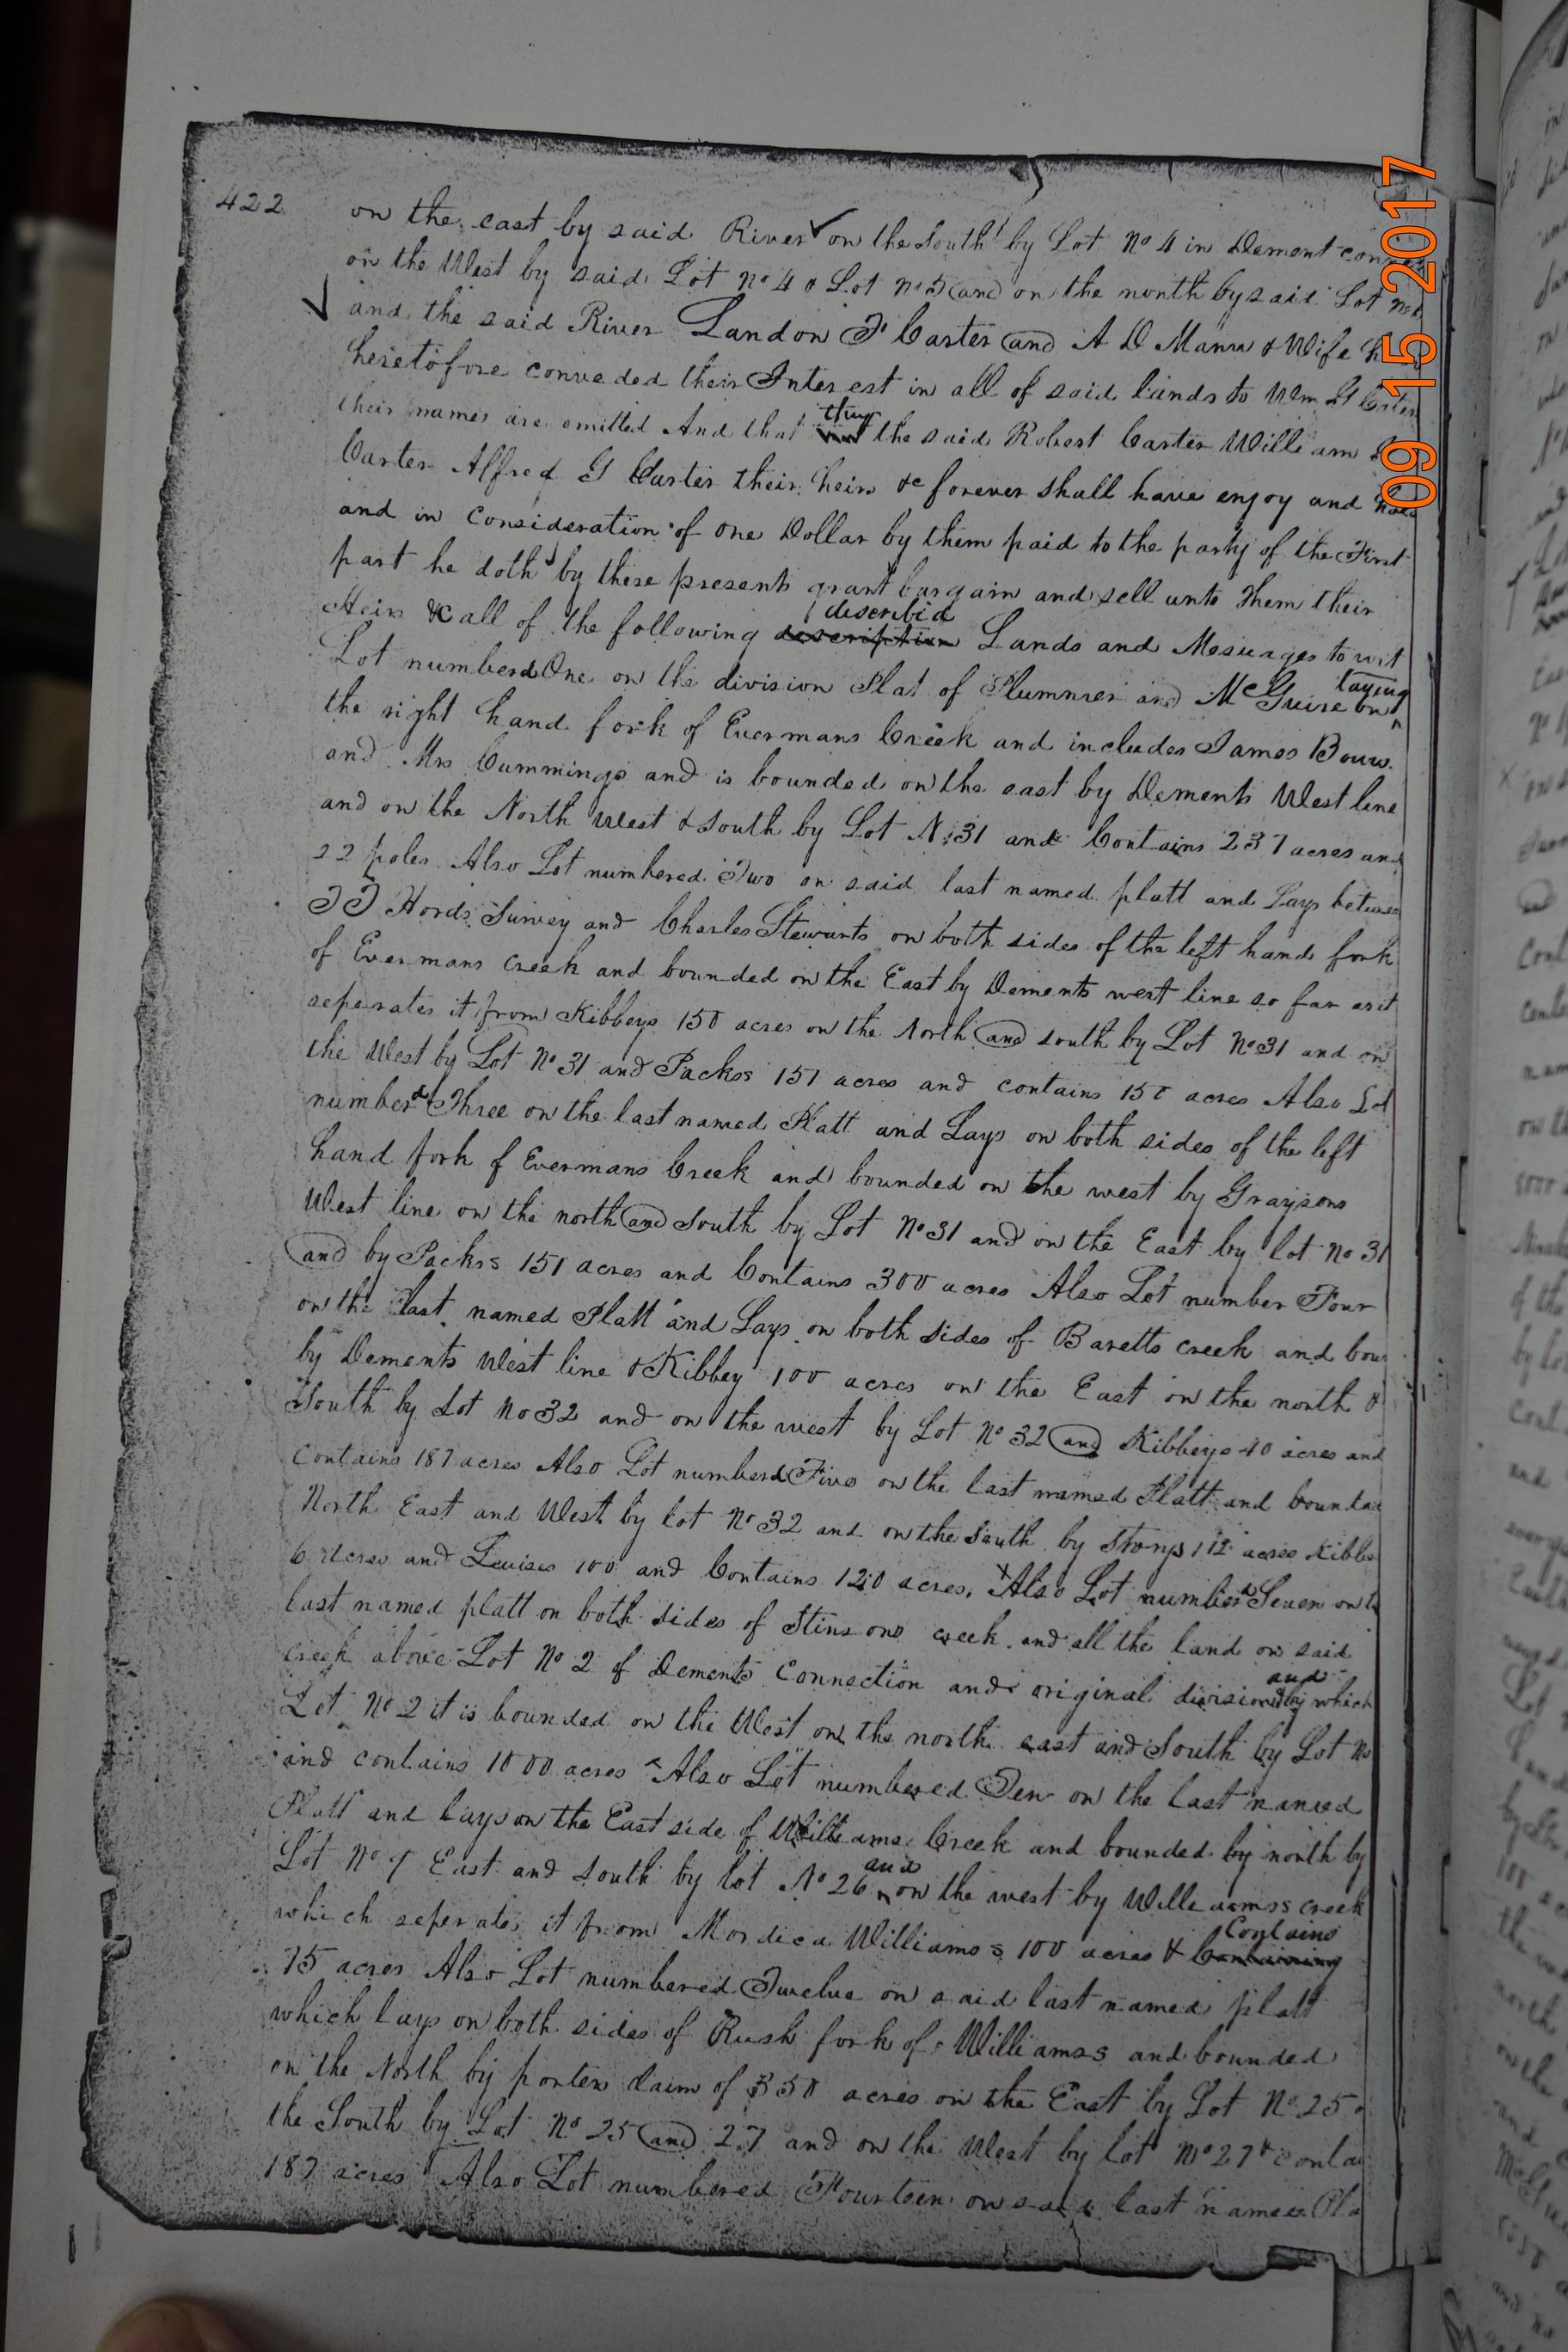 422
on the east by said River on the South by Lot No 4 in Dement
on the West by said Lot No 4 & Lot No 5 and on the north by said Lot No
and the said River Landon T Carter and A D Mann & Wife
heretofore conveded their Interest in all of said lands to Wm G Carter
their names are omitted And that they the said Robert Carter William
Carter Alfred G Carter their heirs &c forever shall have enjoy and
and in consideration of one Dollar by them paid to the party of the First
part he doth by these presents grant bargain and sell unto them their
Heirs &c all of the following description described Lands and Messuages to wit
Lot numberd One on the division Plat of Plummer and McGuire on laying
the right hand fork of Evermans Creek and includes James
and Mrs Cummings and is bounded on the east by Dements West line
and on the North West & South by Lot N 31 and Contains 237 acres and
22 poles Also Lot numbered Two on said last named platt and Lays between
Hords Survey and Charles Stewarts on both sides of the left hand fork
of Evermans creek and bounded on the East by Dements west line so far as it
seperates it from Kibbeys 150 acres on the North and south by Lot No 31 and on
the West by Lot No 31 and Packss 151 acres and contains 150 acres Also Lot
numberd Three on the last named Platt and Lays on both sides of the left
hand fork f Evermans Creek and bounded on the west by Graysons
West line on the north and South by Lot No 31 and on the East by lot No 31
and by Packss 151 acres and Contains 300 acres Also Lot number Four
on the last named Platt and Lays on both sides of Baretts creek and bou
by Dements West line & Kibbey 100 acres on the East on the north &
South by Lot No 32 and on the west by Lot No 32 and Kibbeys 40 acres and
Contains 187 acres Also Lot numberd Five on the last named Platt and bounded
North East and West by lot No 32 and on the South by Storys 112 acres
acres and Lewises 100 and Contains 120 acres. Also Lot numberd Seven on
last named platt on both sides of Stinsons creek and all the land on said
creek above Lot No 2 of Dements Connection and original division and by which
Lot No 2 it is bounded on the West on the north east and South by Lot No
and contains 1000 acres Also Lot numbered Ten on the last named
Platt and lays on the East side of Williams Creek and bounded by north by
Lot No 9 East and South by lot No 26 and on the west by Williamss creek
which seperates it from Mordica Williams s 100 acres & Containing Contains
75 acres Also Lot numbered Twelve on said last named platt
which lays on both sides of Rush fork of Williamss and bounded
on the North by porters claim of 350 acres on the East by Lot No 25
the South by Lot No 25 and 27 and on the West by lot No 27 & contai
187 acres Also Lot numbered Fourteen on said last named Pla
09 15 2017